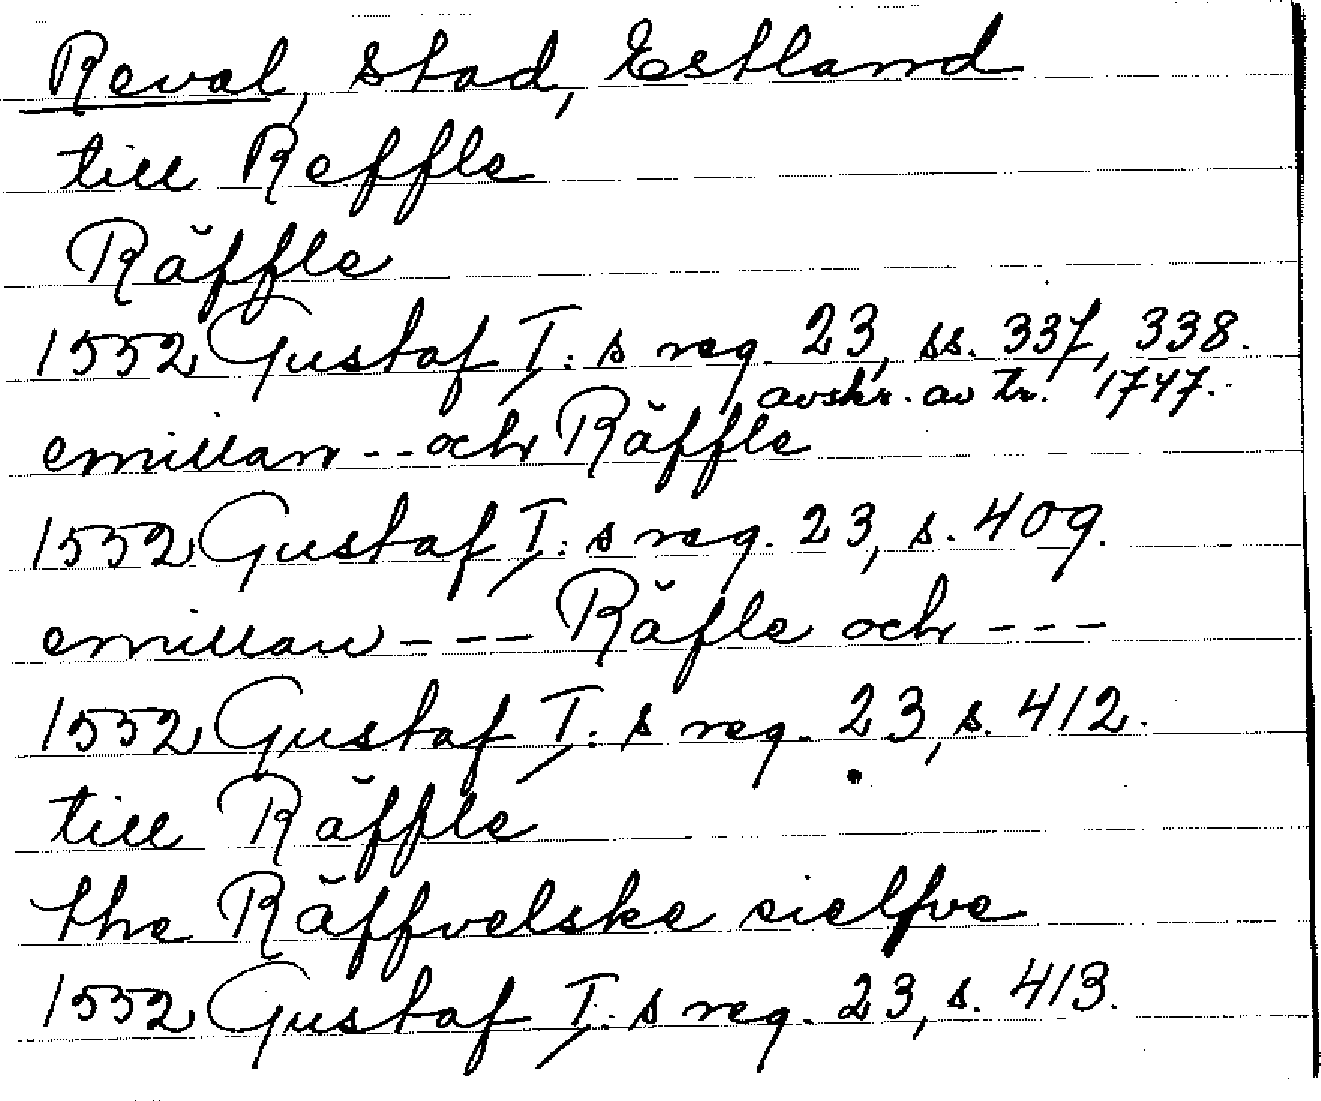 Reval, stad, Estland
till Reffle
Räffle
1552 Gustaf I: s reg. 23, ss. 337, 338.
avskr. av tr. 1747.
emillan -- och Räffle
1552 Gustaf I: s reg. 23, s. 409.
emillan --- Räfle och ---
1552 Gustaf I: s reg. 23, s. 412.
till Räffle
the Räffvelske sielfve
1552 Gustaf I: s reg. 23, s. 413.